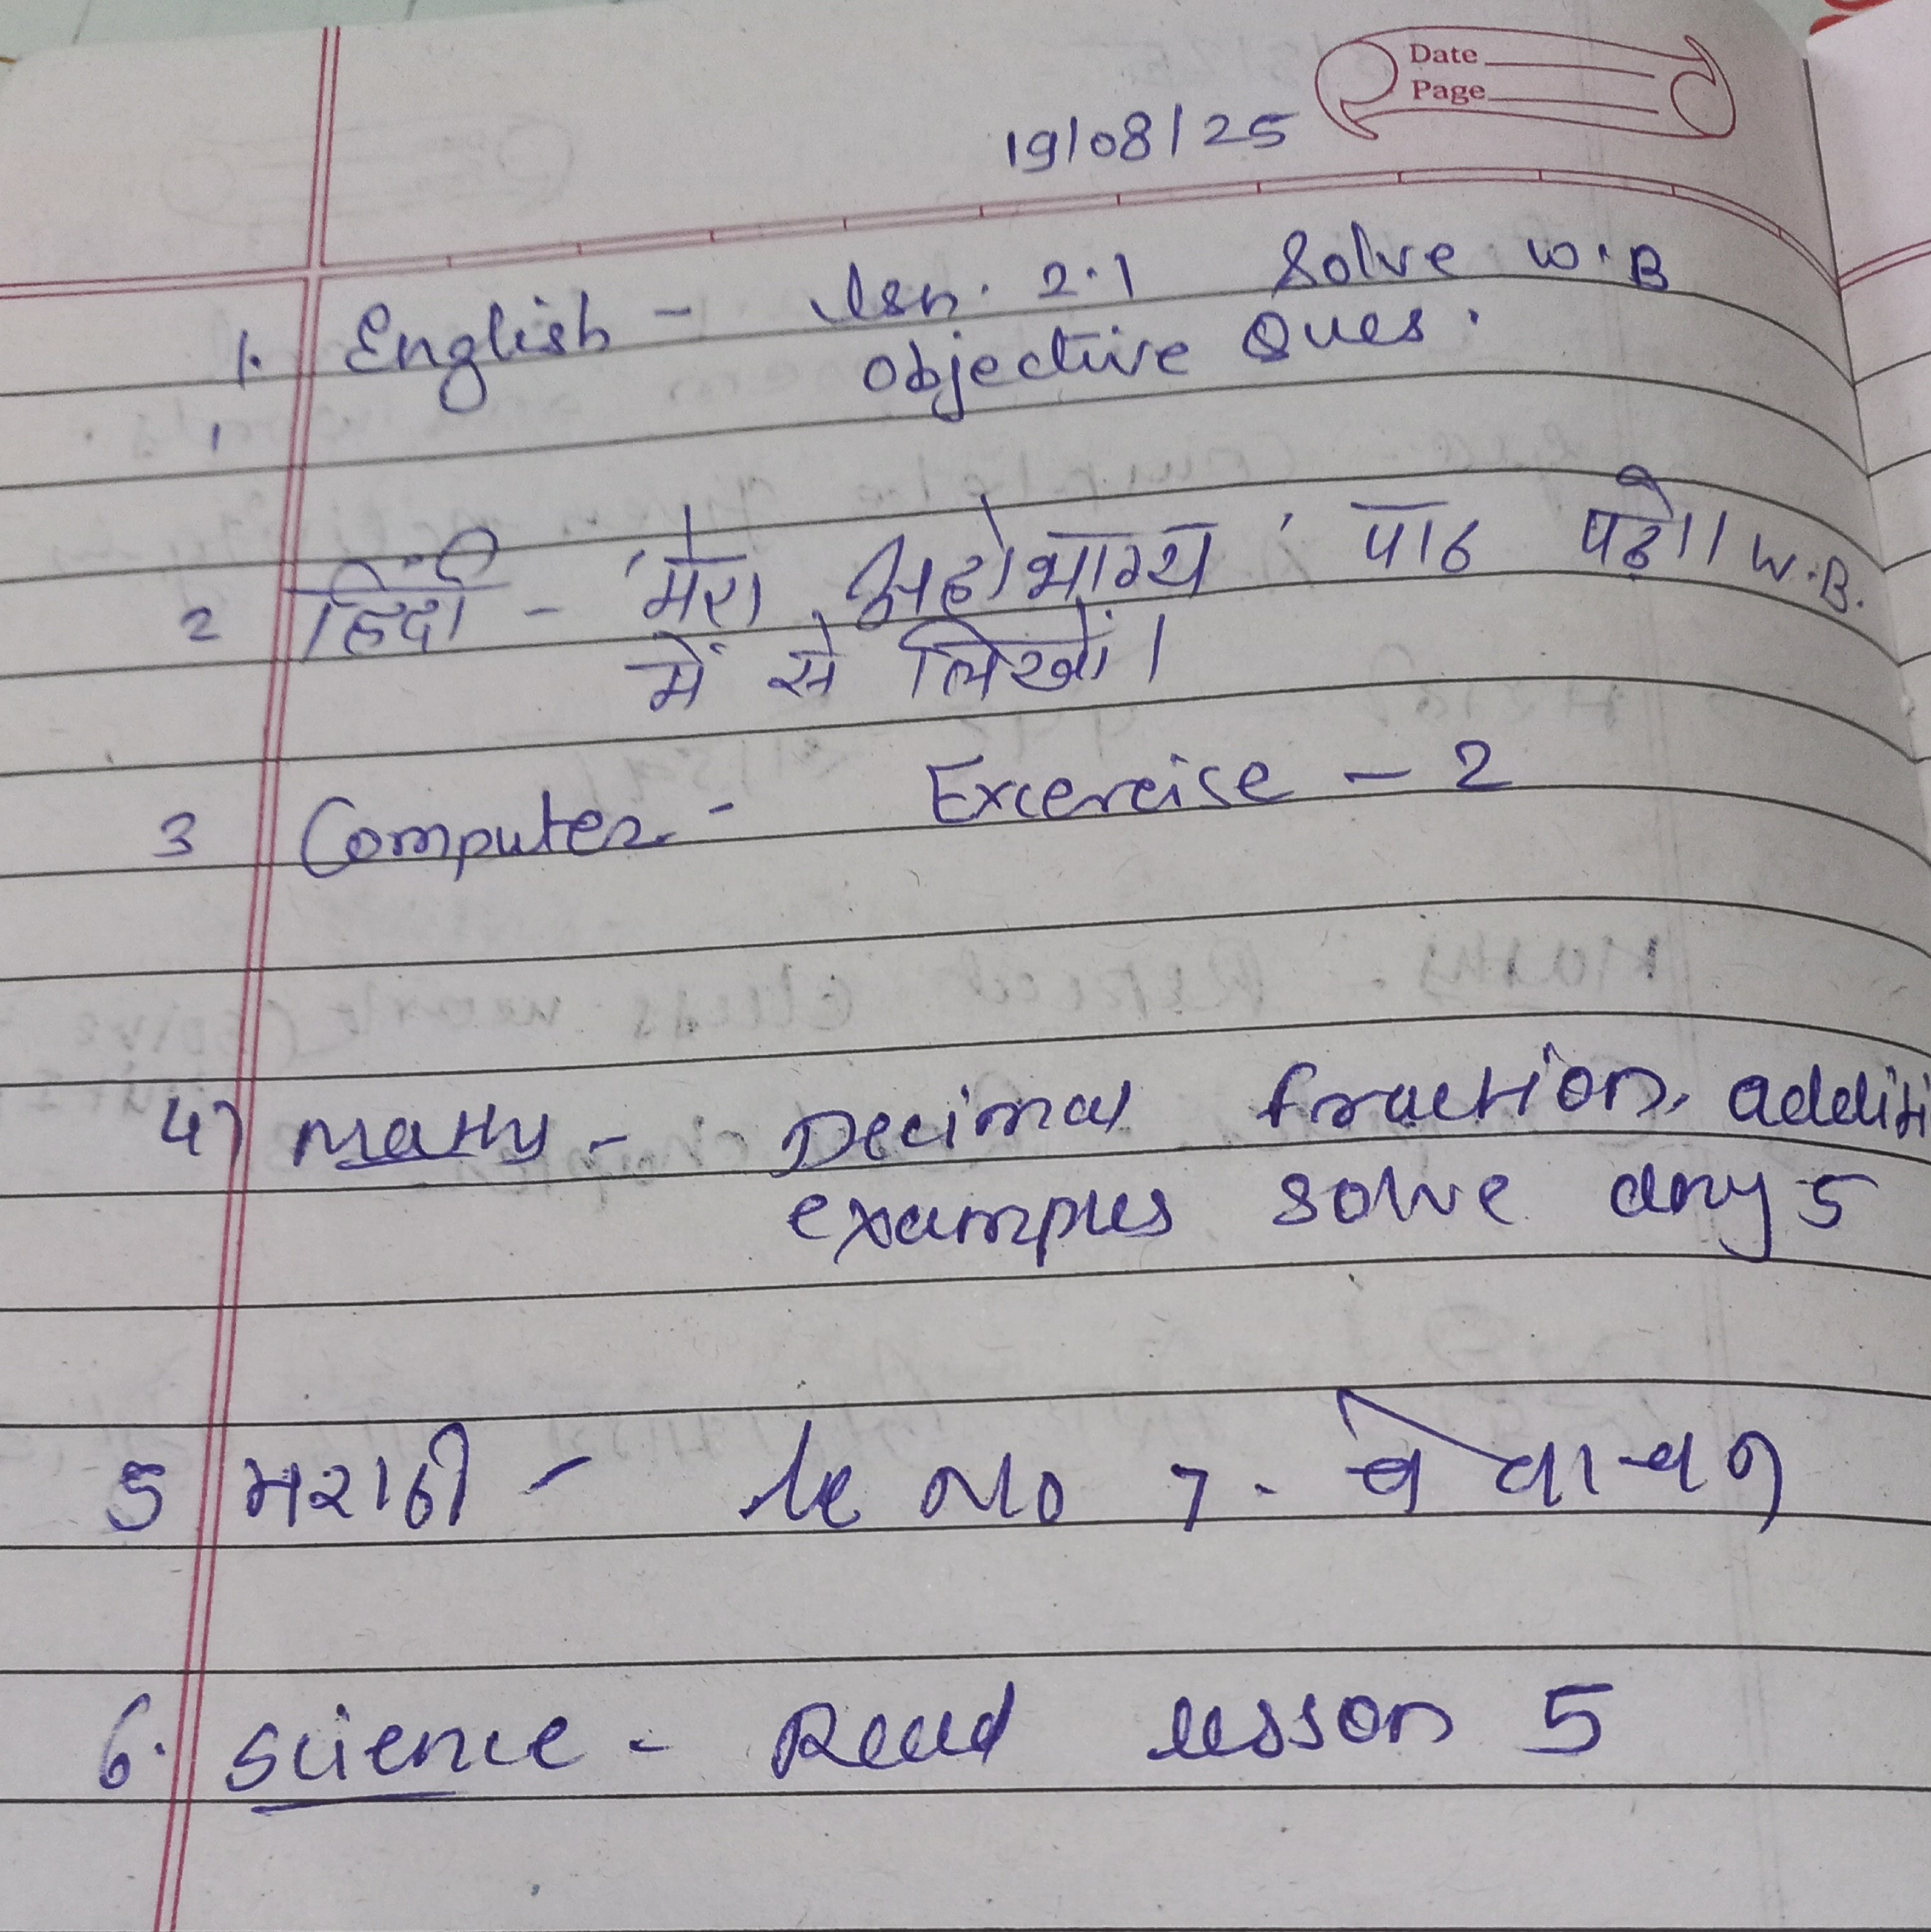 Date
Page
19/08/25
1. English - lsn. 2.1 Solve W.B
Objective Ques.
2 हिंदी - 'मेरा अहोभाग्य' पाठ पढो।। W.B.
में से लिखों।
3 Computer - Excercise - 2
4) Maths - Decimal fraction, additi
examples solve any 5
5 मराठी - Le No 7. चे वाचन
6. Science - Read lesson 5